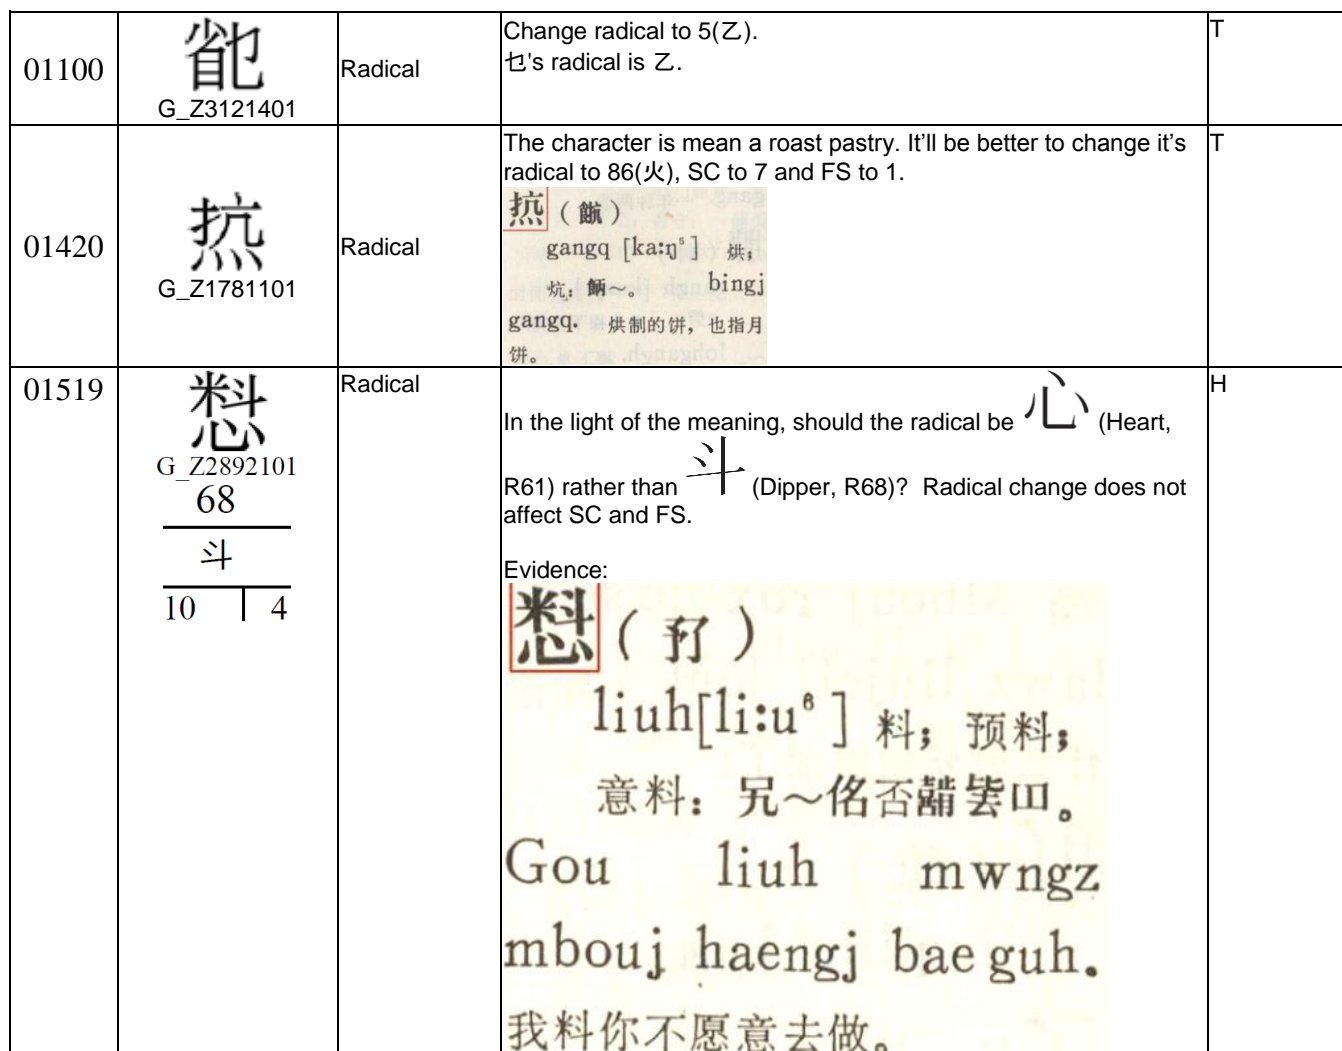 01100
G_Z3121401
Radical
Change radical to 5(乙).
乜's radical is 乙.
T
01420
G_Z1781101
Radical
The character is mean a roast pastry. It’ll be better to change it’s
radical to 86(火), SC to 7 and FS to 1.
gangq [ka:ŋ⁵] 烘;
炕: ～。 bingj
gangq. 烘制的饼，也指月
饼。
T
01519
G_Z2892101
68
斗
10 4
Radical
In the light of the meaning, should the radical be 心 (Heart,
R61) rather than 斗 (Dipper, R68)? Radical change does not
affect SC and FS.
Evidence:
liuh[li:u⁶] 料; 预料;
意料: ～佲否
Gou liuh mwngz
mbouj haengj bae guh.
我料你不愿意去做。
H